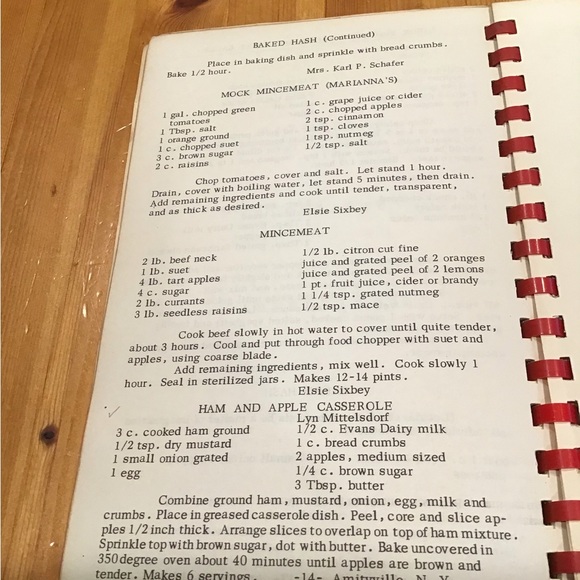 BAKED HASH (Continued)
Place in baking dish and sprinkle with bread crumbs.
Bake 1/2 hour. Mrs. Karl P. Schafer
MOCK MINCEMEAT (MARIANNA'S)
1 gal. chopped green tomatoes
1 Tbsp. salt
1 orange ground
1 c. chopped suet
3 c. brown sugar
2 c. raisins
1 c. grape juice or cider
2 c. chopped apples
2 tsp. cinnamon
1 tsp. cloves
1 tsp. nutmeg
1/2 tsp. salt
Chop tomatoes, cover and salt. Let stand 1 hour.
Drain, cover with boiling water, let stand 5 minutes, then drain.
Add remaining ingredients and cook until tender, transparent,
and as thick as desired. Elsie Sixbey
MINCEMEAT
2 lb. beef neck
1 lb. suet
4 lb. tart apples
4 c. sugar
2 lb. currants
3 lb. seedless raisins
1/2 lb. citron cut fine
juice and grated peel of 2 oranges
juice and grated peel of 2 lemons
1 pt. fruit juice, cider or brandy
1 1/4 tsp. grated nutmeg
1/2 tsp. mace
Cook beef slowly in hot water to cover until quite tender,
about 3 hours. Cool and put through food chopper with suet and
apples, using coarse blade.
Add remaining ingredients, mix well. Cook slowly 1
hour. Seal in sterilized jars. Makes 12-14 pints.
Elsie Sixbey
HAM AND APPLE CASSEROLE
Lyn Mittelsdorf
3 c. cooked ham ground
1/2 tsp. dry mustard
1 small onion grated
1 egg
1/2 c. Evans Dairy milk
1 c. bread crumbs
2 apples, medium sized
1/4 c. brown sugar
3 Tbsp. butter
Combine ground ham, mustard, onion, egg, milk and
crumbs. Place in greased casserole dish. Peel, core and slice ap-
ples 1/2 inch thick. Arrange slices to overlap on top of ham mixture.
Sprinkle top with brown sugar, dot with butter. Bake uncovered in
350 degree oven about 40 minutes until apples are brown and
tender. Makes 6 servings. -14- Amityville, N. Y.